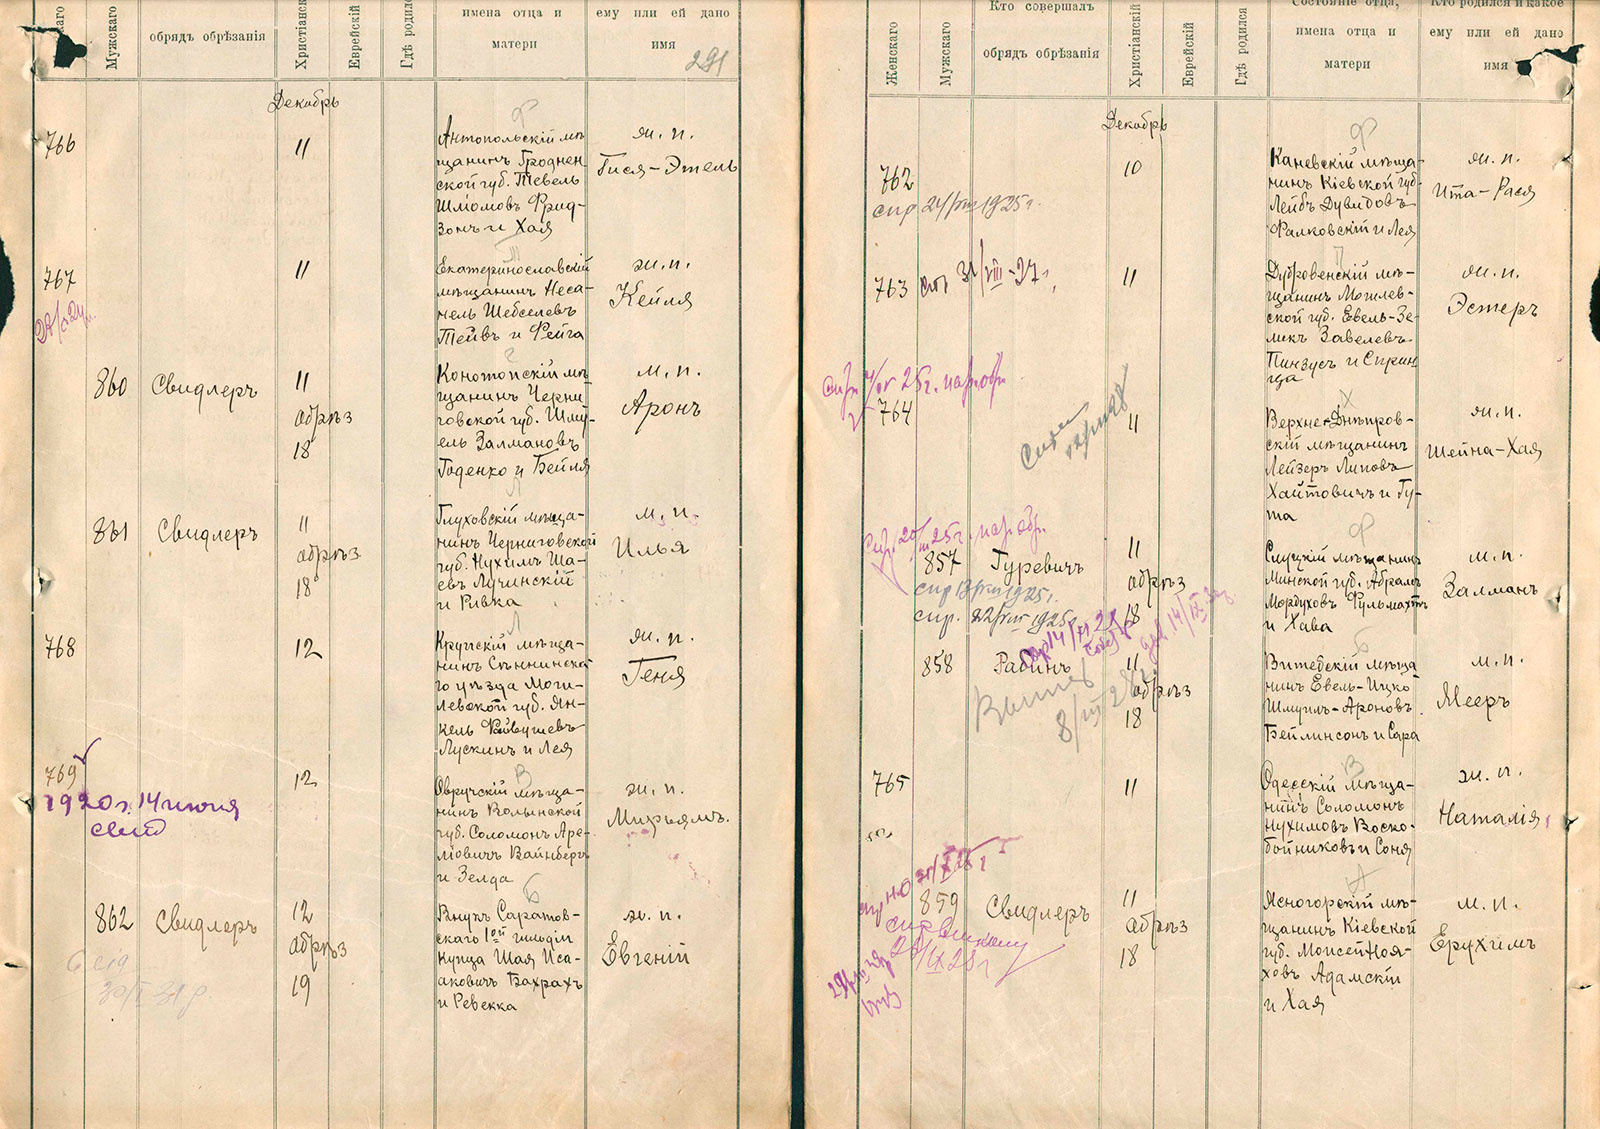 Мужскаго
обрядъ обрѣзанія
Еврейскій
имена отца и
матери
ему или ей дано
имя
291
Декабрь
766
11
Антопольскій мѣ-
щанинъ Гроднен-
ской губ. Тевель
Шліомовъ Фрид-
зонъ и Хая
ж. п.
Гися-Этель
767
11
Екатеринославскій
мѣщанинъ Неса-
нель Шебселевъ
Тейвъ и Фейга
ж. п.
Кейля
860
Свидлеръ
11
обрѣз
18
Конотопскій мѣ-
щанинъ Черни-
говской губ. Шму-
ель Залмановъ
Годенко и Бейля
м. п.
Аронъ
861
Свидлеръ
11
обрѣз
18
Глуховскій мѣща-
нинъ Черниговской
губ. Нухимъ Ша-
евъ Лучинскій
и Ривка
м. п.
Илья
768
12
Кругскій мѣща-
нинъ Сѣннинска-
го уѣзда Моги-
левской губ. Ян-
кель Файвушевъ
Лускинъ и Лея
ж. п.
Геня
769
1920 г. 14 июня
12
Овручскій мѣща-
нинъ Волынской
губ. Соломонъ Аре-
ліовичъ Вайнбергъ
и Зелда
ж. п.
Мирьямъ.
862
Свидлеръ
12
обрѣз
19
Внукъ Саратов-
скаго 1ой гильдіи
Купца Шая Иса-
аковичъ Бахрахъ
и Ревекка
м. п.
Евгеній
Женскаго
Мужскаго
Кто совершалъ
обрядъ обрѣзанія
Христіанскій
Еврейскій
Гдѣ родился
Состояніе отца,
имена отца и
матери
Кто родился и какое
ему или ей дано
имя
Декабрь
762
спр 24/VIII 1925 г.
10
Каневскій мѣща-
нинъ Кіевской губ.
Лейбъ Дувидовъ
Фалковскій и Лея
ж. п.
Ита-Рася
763
31/VIII-27 г.
11
Дубровенскій мѣ-
щанинъ Могилев-
ской губ. Евель-Зе-
ликъ Завелевъ
Пинзусъ и Сприн-
ца
ж. п.
Эстеръ
764
11
Верхне-Днѣпров-
скій мѣщанинъ
Лейзеръ Липовъ
Хайтовичъ и Гу-
та
ж. п.
Шейна-Хая
857
Гуревичъ
спр 13/VIII 1925 г.
спр. 22/VIII 1925 г.
11
обрѣз
18
Слуцкій мѣщанинъ
Минской губ. Абрамъ
Мордуховъ Фульмахтъ
и Хава
м. п.
Залманъ
858
Рабинъ
11
обрѣз
18
Витебскій мѣща
нинъ Евель-Ицко
Шмуилъ-Ароновъ
Бейлинсонъ и Сара
м. п.
Мееръ
765
11
Одесскій мѣща-
нинъ Соломонъ
Нухимовъ Воско-
бойниковъ и Соня
ж. п.
Наталія
859
Свидлеръ
11
обрѣз
18
Ясногорскій мѣ-
щанинъ Кіевской
губ. Моисей Ноя-
ховъ Адамскій
и Хая
м. п.
Ерухимъ